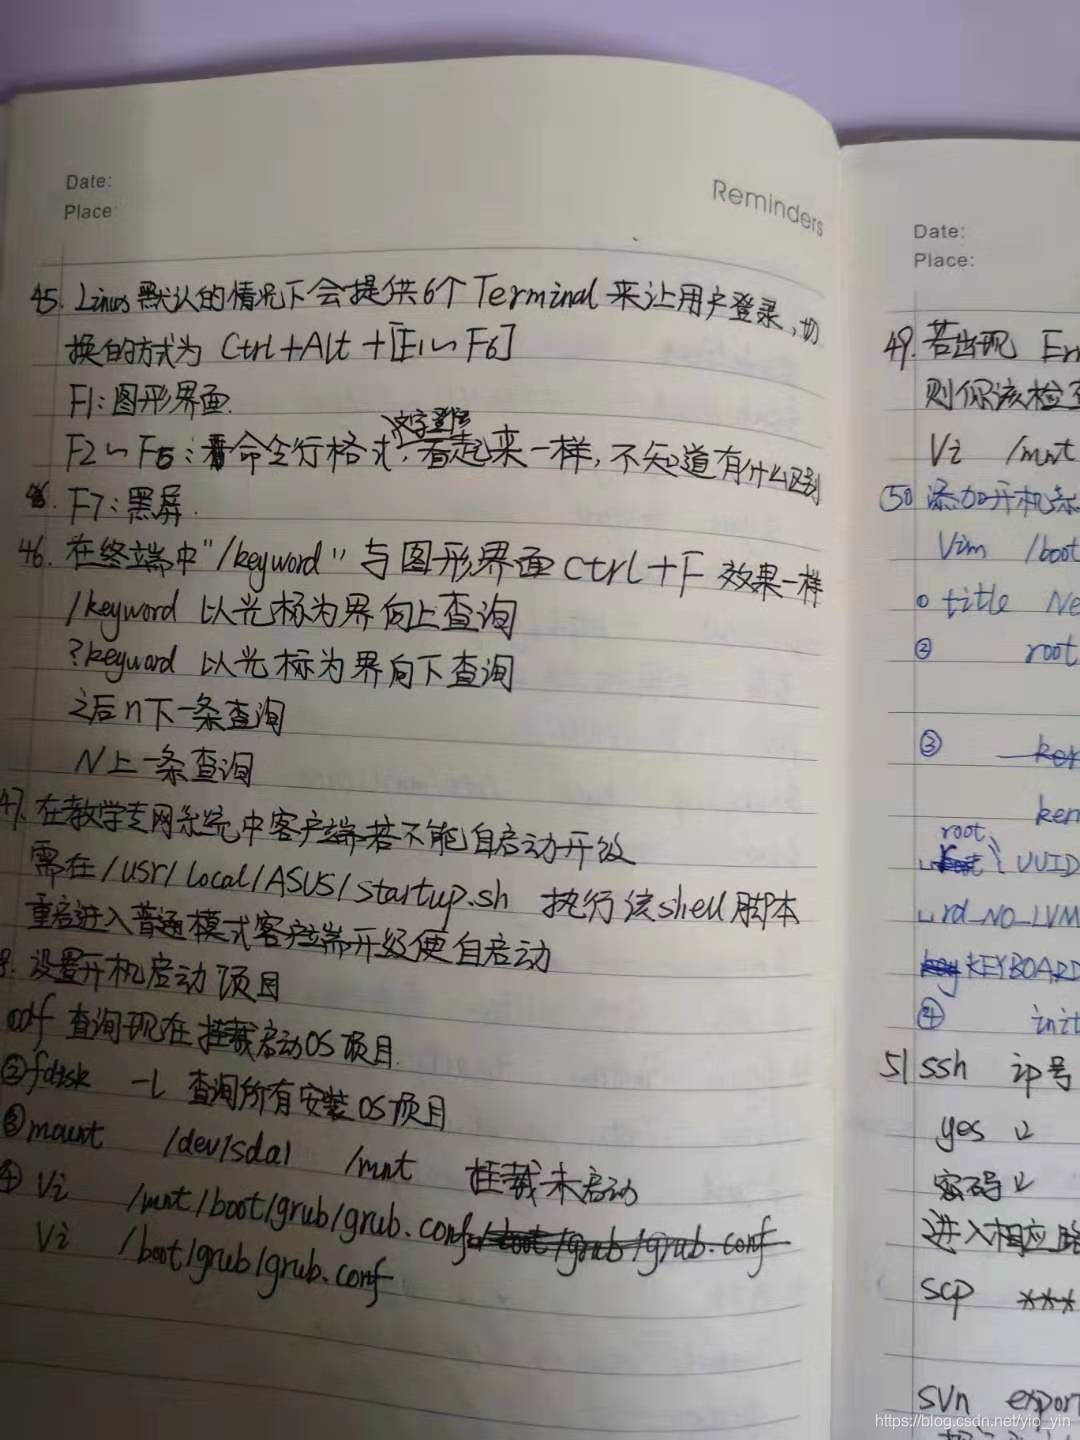 Date:
Place:
Reminders
45. Linux 默认的情况下会提供6个 Terminal 来让用户登录,切
换的方式为 Ctrl+Alt+[F1~F6]
F1:图形界面.
文字登陆
F2~F6:命令行格式,看起来一样,不知道有什么区别
F7:黑屏.
46. 在终端中"/keyword"与图形界面 Ctrl+F 效果一样
/keyword 以光标为界向上查询
?keyword 以光标为界向下查询
之后n下一条查询
N上一条查询
47. 在教学专网系统中客户端若不能自启动开放
需在/usr/local/ASUS/startup.sh 执行该shell脚本
重启进入普通模式客户端开经便自启动
8. 设置开机启动项目
①df 查询现在挂载启动OS项目.
②fdisk -l 查询所有安装OS项目
③mount /dev/sda1 /mnt 挂载未启动
④ Vi /mnt/boot/grub/grub.conf
Vi /boot/grub/grub.conf
Date:
Place:
49. 若出现 Err
则你该检查
Vi /mnt
50 添加开机
Vim /boot
title Ne
② root
③ ker
kern
root
UUID
rd_NO_LVM
KEYBOARD
④ init
51 ssh ip号
yes ↵
密码↵
进入相应路
scp ***
svn export
https://blog.csdn.net/yio_yin